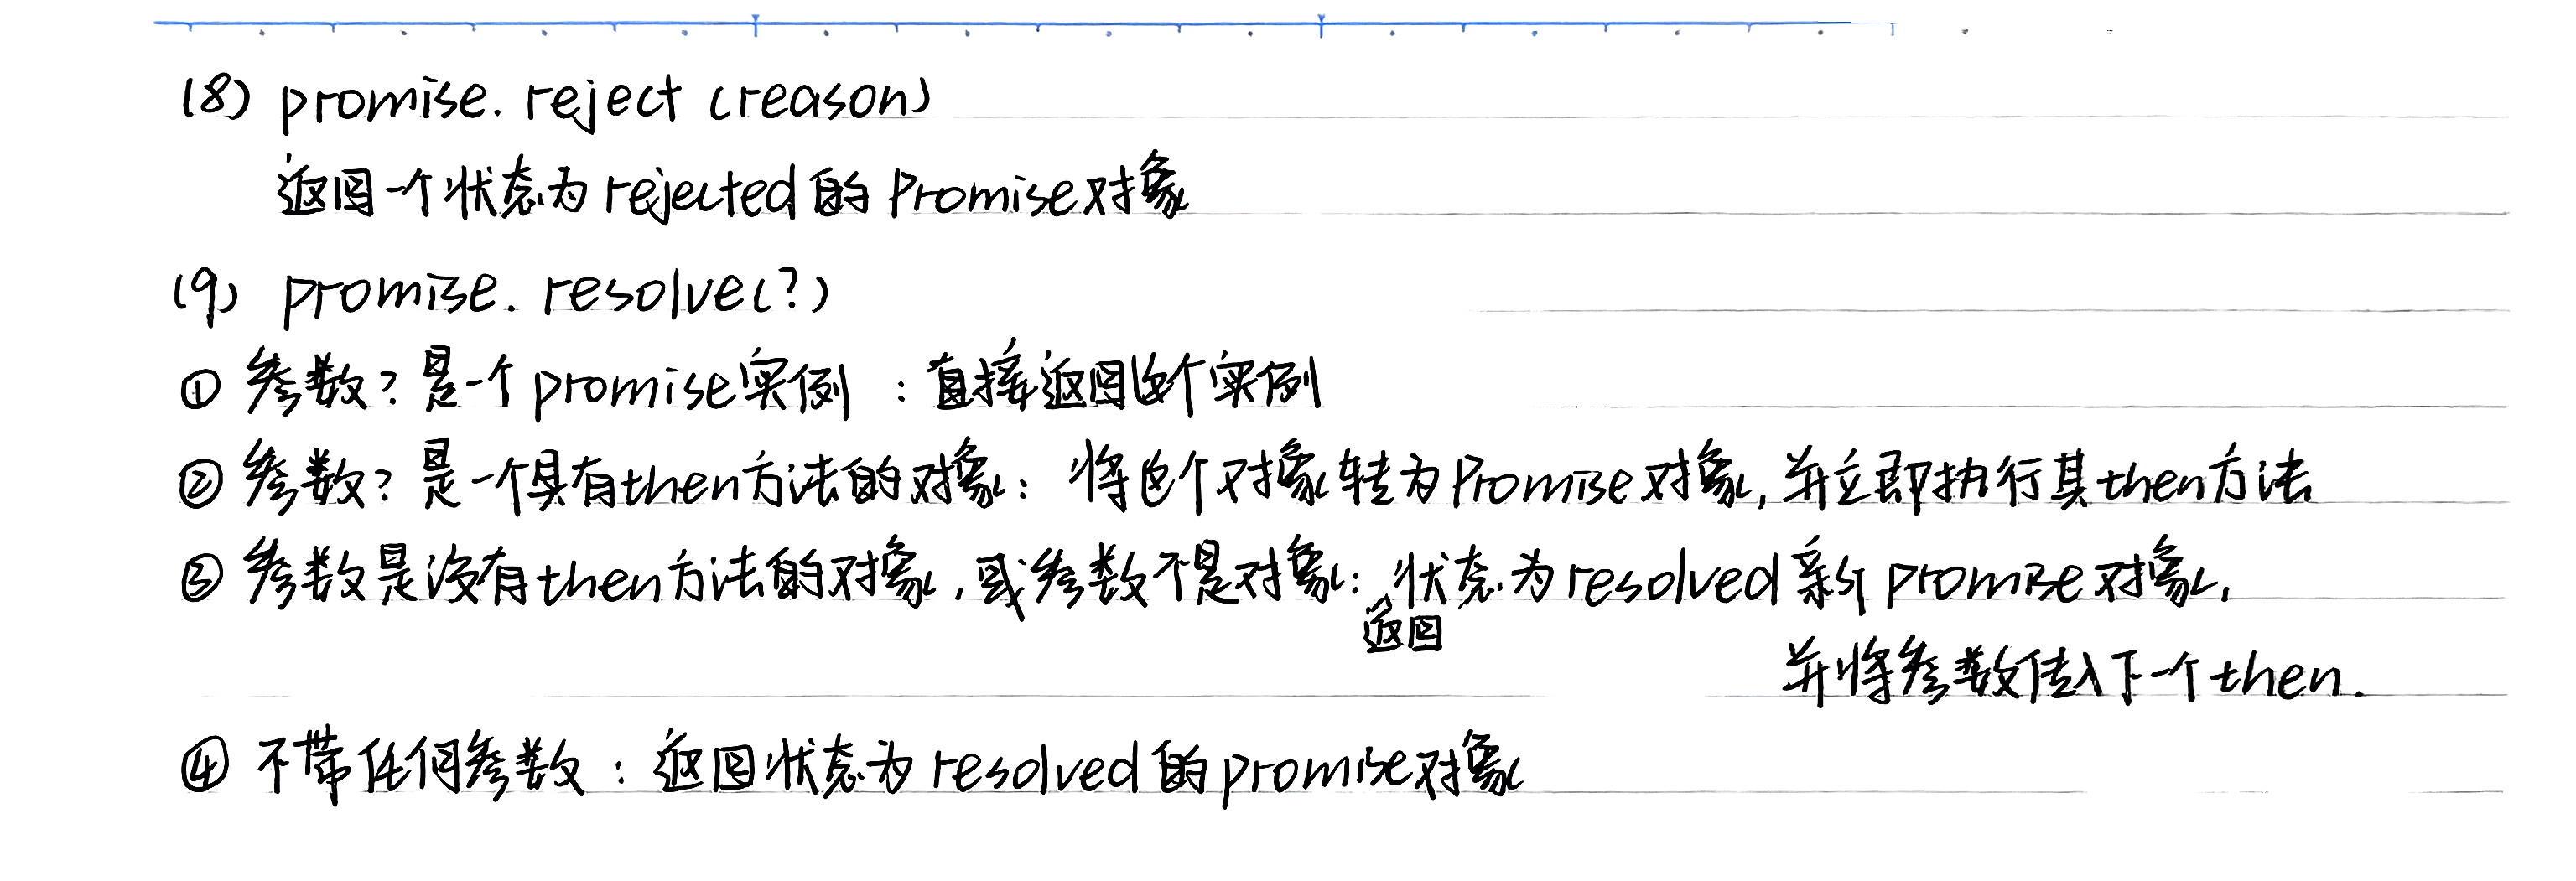 (8) promise. reject (reason)
返回一个状态为rejected的Promise对象
(9) promise. resolve(?)
① 参数?是一个promise实例:直接返回这个实例
② 参数?是一个具有then方法的对象:将这个对象转为Promise对象,并立即执行其then方法
③ 参数是没有then方法的对象,或参数不是对象:返回状态为resolved新的promise对象,
并将参数传入下一个then.
④ 不带任何参数:返回状态为resolved的promise对象